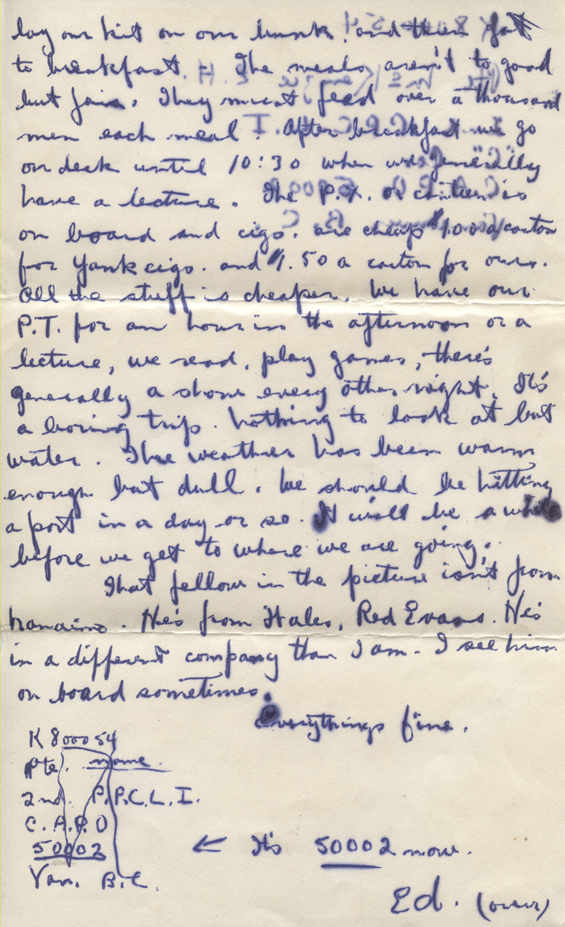 lay our kit on our bunk. and then fall
to breakfast. The meals aren't to good
but fair. They must feed over a thousand
men each meal. After breakfast we go
on deck until 10:30 when we generally
have a lecture. The P.X. or canteen is
on board and cigs. are cheap $1.00 a carton
for Yank cigs. and $1.50 a carton for ours.
All the stuff is cheaper. We have our
P.T. for an hour in the afternoon or a
lecture, we read, play games, there's
generally a show every other night. It's
a boring trip. Nothing to look at but
water. The weather has been warm
enough but dull. We should be hitting
a port in a day or so. It will be a while
before we get to where we are going.
That fellow in the picture isn't from
Nanaimo. He's from Hales, Red Evans. He's
in a different company than I am. I see him
on board sometimes.
Everythings fine.
K 800054
Pte. name.
2nd. P.P.C.L.I.
C.A.P.O
50002
Van. B.C.
← It's 50002 now.
Ed. (over)